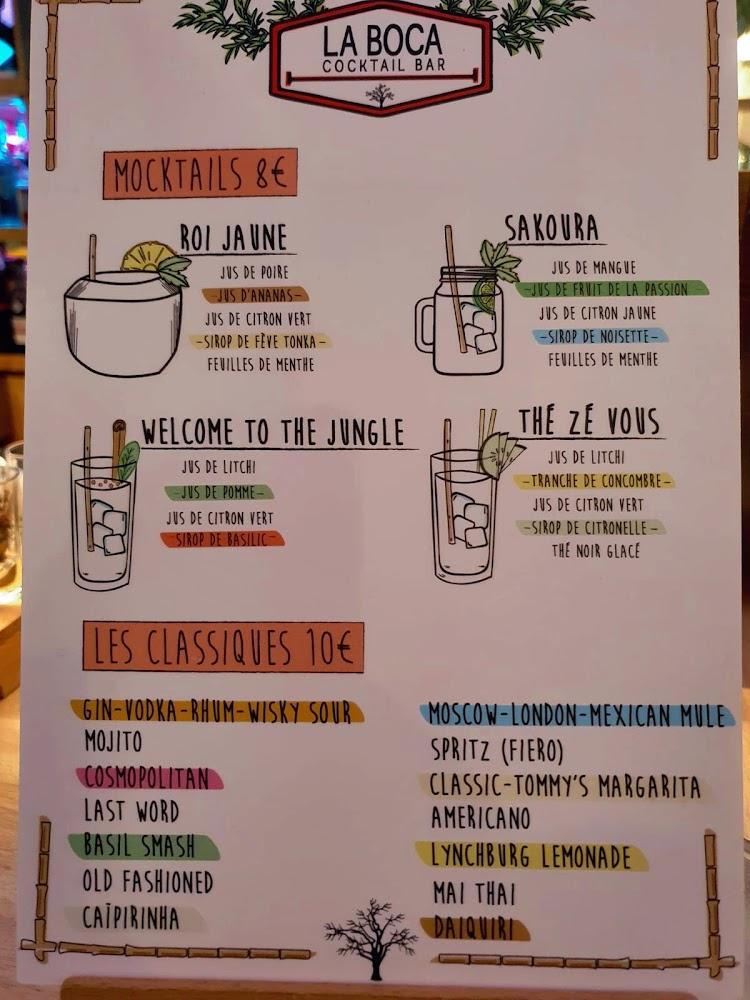 LA BOCA
COCKTAIL BAR
MOCKTAILS 8€
ROI JAUNE
JUS DE POIRE
-JUS D'ANANAS-
JUS DE CITRON VERT
-SIROP DE FÈVE TONKA-
FEUILLES DE MENTHE
SAKOURA
JUS DE MANGUE
-JUS DE FRUIT DE LA PASSION
JUS DE CITRON JAUNE
-SIROP DE NOISETTE-
FEUILLES DE MENTHE
WELCOME TO THE JUNGLE
JUS DE LITCHI
-JUS DE POMME-
JUS DE CITRON VERT
-SIROP DE BASILIC-
THÉ ZÉ VOUS
JUS DE LITCHI
-TRANCHE DE CONCOMBRE-
JUS DE CITRON VERT
-SIROP DE CITRONELLE-
THÉ NOIR GLACÉ
LES CLASSIQUES 10€
GIN-VODKA-RHUM-WISKY SOUR
MOJITO
COSMOPOLITAN
LAST WORD
BASIL SMASH
OLD FASHIONED
CAÏPIRINHA
MOSCOW-LONDON-MEXICAN MULE
SPRITZ (FIERO)
CLASSIC-TOMMY'S MARGARITA
AMERICANO
LYNCHBURG LEMONADE
MAI THAI
DAIQUIRI